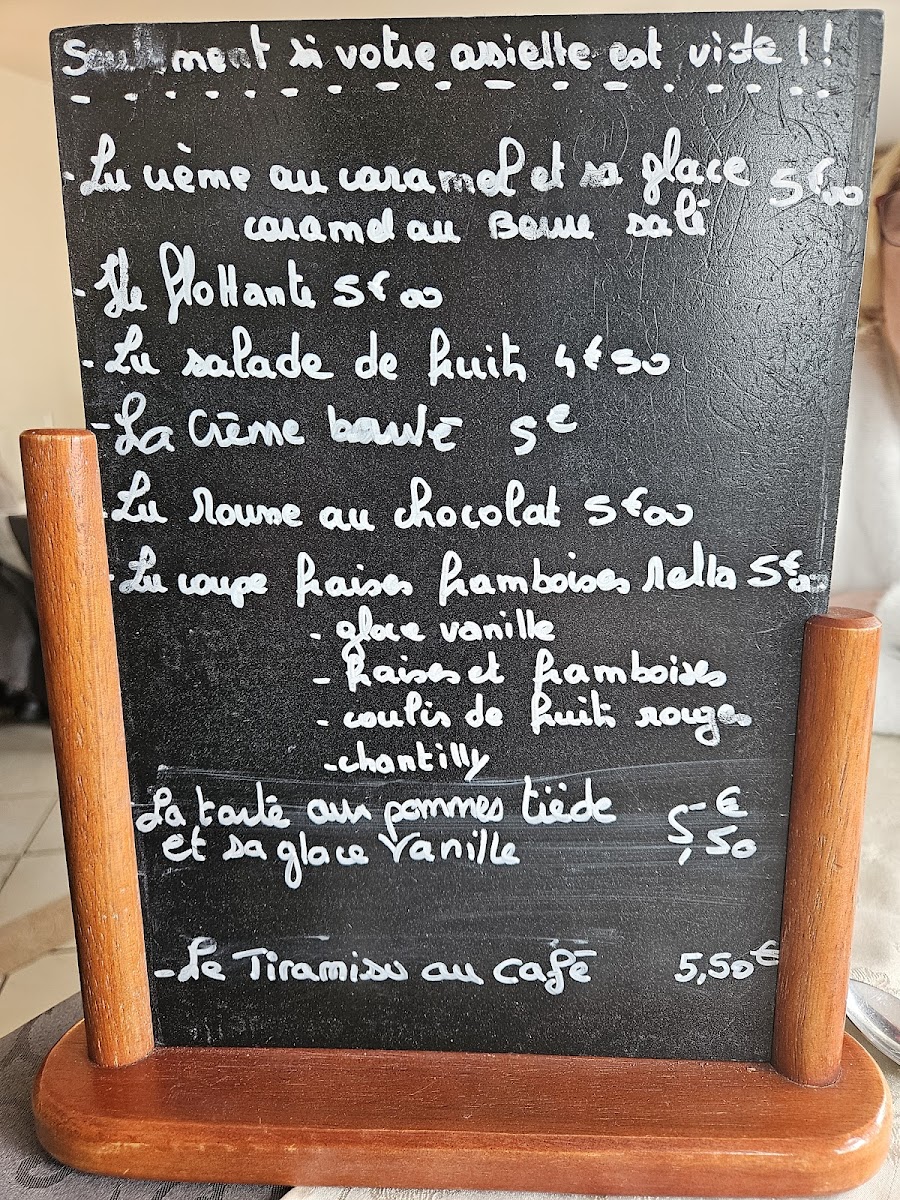 Seulement si votre assiette est vide !!
- La crème au caramel et sa glace 5€00
caramel au Beurre salé
- Ile flottante 5€00
- La salade de fruits 4€50
- La Crème brulé 5€
- La Mousse au chocolat 5€00
- La coupe fraises framboises Melba 5€00
- glace vanille
- fraises et framboises
- coulis de fruits rouges
- chantilly
La tarte aux pommes tiède 5,50€
et sa glace Vanille
- Le Tiramisu au café 5,50€